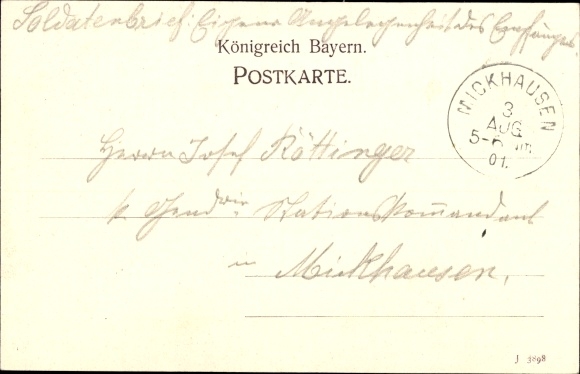 Soldatenbrief. Eigene Angelegenheit des Empfängers.
Königreich Bayern.
POSTKARTE.
MICKHAUSEN
3
AUG
5-6 Nm.
01.
Herrn Josef Röttinger
k. Gend rie Stations Kommandant
in
Mickhausen.
J 3898